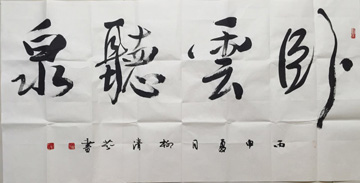 卧雲聽泉
丙申夏月柳清芸書